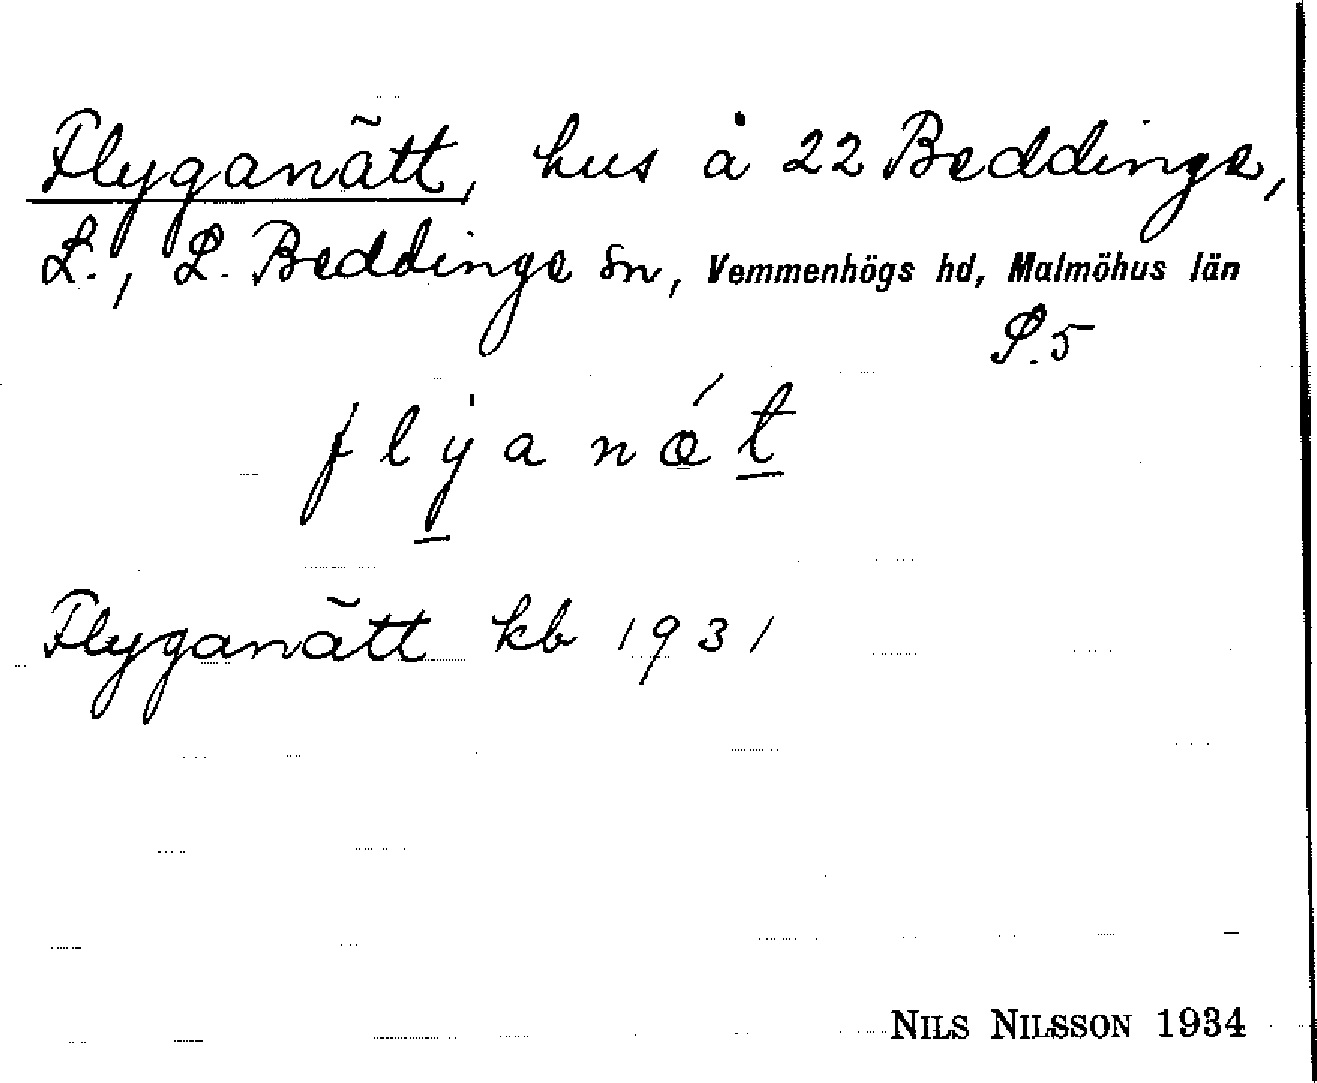 Flyganätt, hus å 22 Beddinge,
L., L. Beddinge sn, Vemmenhögs hd, Malmöhus län
S.5
flyanǽt
Flyganätt kb 1931
NILS NILSSON 1934